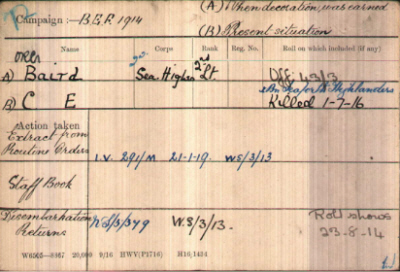 (A) When decoration was earned
Campaign:- B.E.F. 1914
(B) Present situation
Name Corps Rank Reg. No. Roll on which included (if any)
A) Baird 2d. Sea. Highrs 2nd Lt. Off 43/3
2Bn Seaforth Highlanders
B) C E Killed 1-7-16
Action taken
Extract from
Routine Orders I.V. 291/M 21-1-19. WS/3/13
Staff Book
Disembarkation Roll shows
Returns W.S/3/13. 23-8-14
20,000 9/16 HWV(P1716) H16/1434